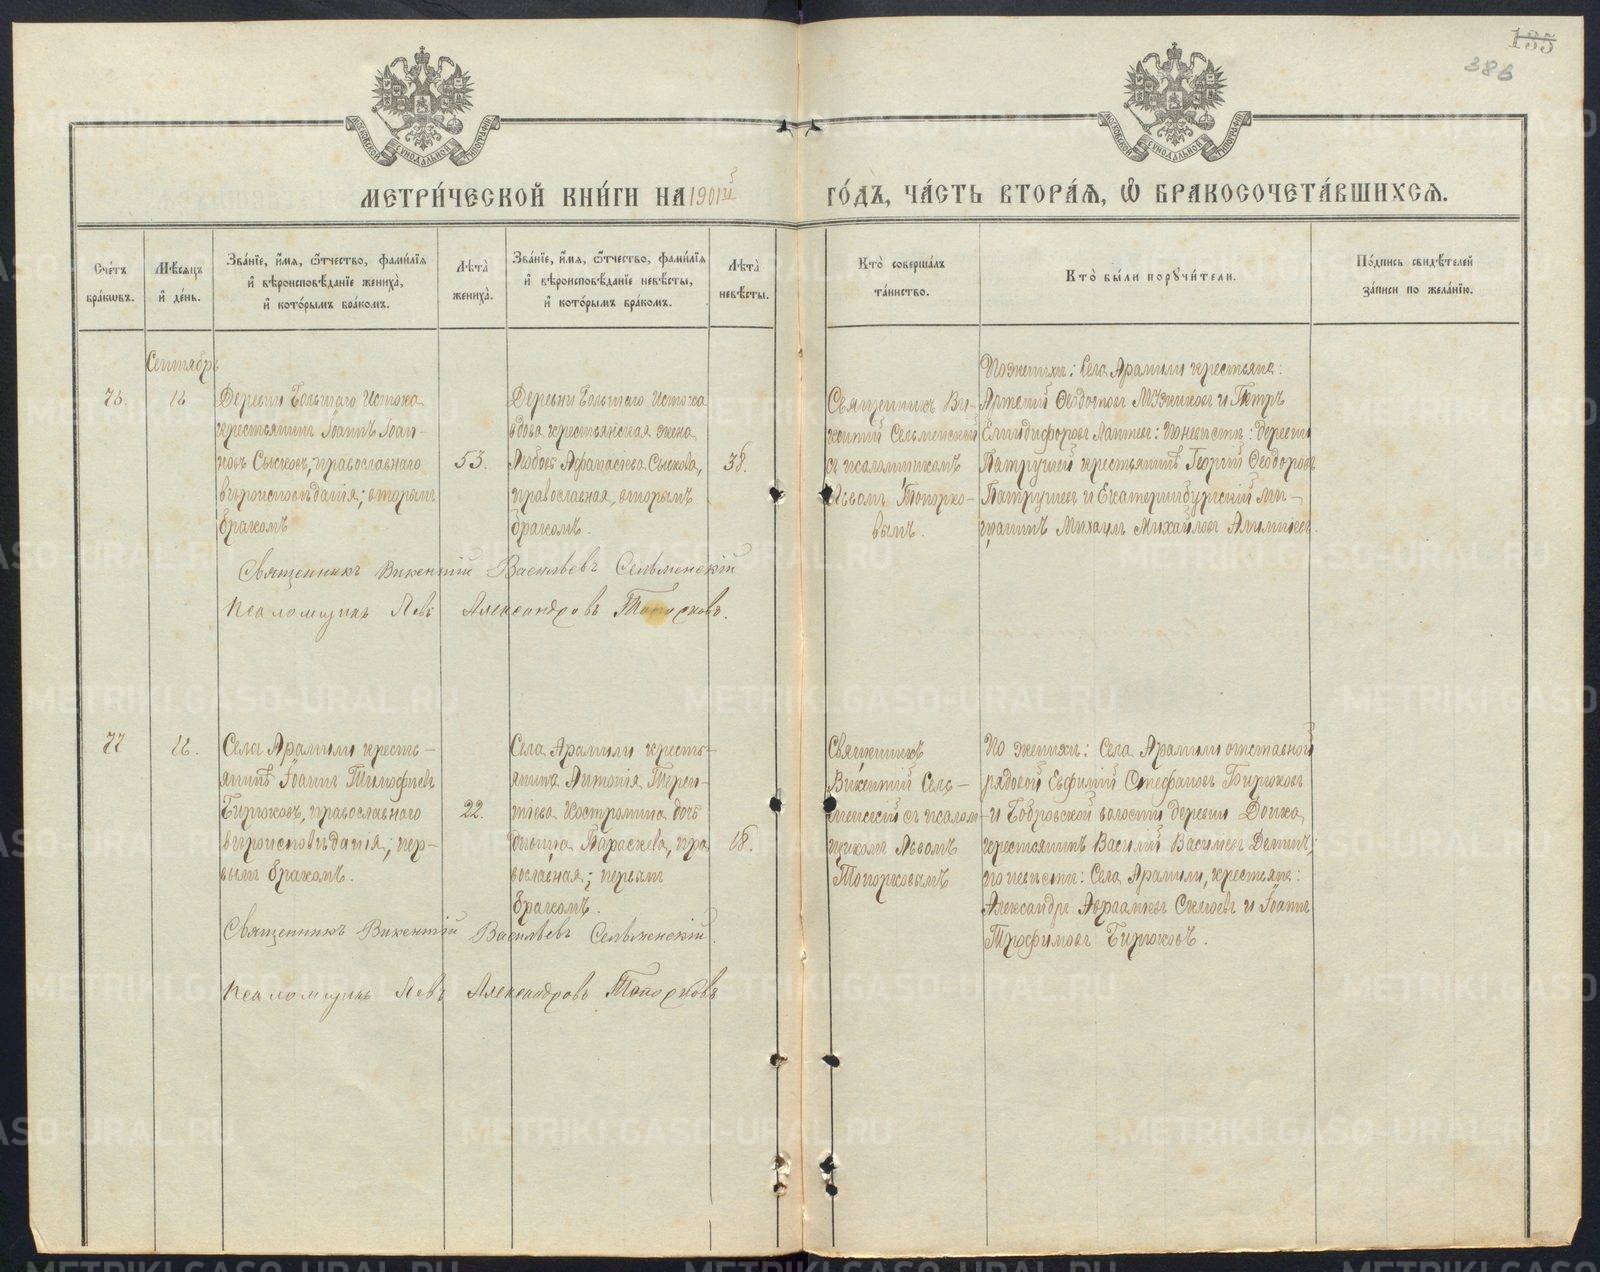 135
386
МОСКОВСКОЙ СѴНОДАЛЬНОЙ ТИПОГРАФІИ
МОСКОВСКОЙ СѴНОДАЛЬНОЙ ТИПОГРАФІИ
МЕТРИ́ЧЕСКОЙ КНИ́ГИ НА 1901й ГО́ДЪ, ЧА́СТЬ ВТОРА́Я, Ѡ҆ БРАКОСОЧЕТА́ВШИХСЯ.
Сче́тъ бра́кωвъ.
Мѣ́сяцъ и҆ де́нь.
Зва́нїе, и҆́мя, ѻ҆́тчество, фами́лїя и҆ вѣроисповѣ́данїе жениха̀, и҆ кото́рымъ бра́комъ.
Лѣ́та жениха̀.
Зва́нїе, и҆́мя, ѻ҆́тчество, фами́лїя и҆ вѣроисповѣ́данїе невѣ́сты, и҆ кото́рымъ бра́комъ.
Лѣ́та невѣ́сты.
Кто̀ соверша́лъ та́инство.
Кто̀ бы́ли порꙋчи́тели.
По́дпись свидѣ́телей за́писи по жела́нїю.
Сентябрь
76.
16
Деревни Большаго Истока
крестьянинъ Іоаннъ Іоан-
новъ Сысковъ, православнаго
вѣроисповѣданія; вторымъ
бракомъ
53.
Деревни Большаго Истока
вдова крестьянская жена
Любовь Афанасіева Сыскова,
православная, вторымъ
бракомъ.
38.
Священникъ Ви-
кентій Сельменскій
съ псаломщикомъ
Львомъ Топорко-
вымъ.
По женихѣ: Села Арамили крестьяне:
Артемій Ѳеодотов и Петръ
Елпидифоровъ Лаптевъ: по невѣстѣ: деревни
Патрушей крестьянинъ Георгій Ѳеодоровъ
Патрушевъ и Екатеринбургскій мѣ-
щанинъ Михаилъ Михайловъ
Священникъ Викентій Васильевъ Сельменскій
Псаломщикъ Левъ Александровъ Топорковъ.
77
16.
Села Арамили кресть-
янинъ Іоаннъ Тимофіевъ
Бирюковъ, православнаго
вѣроисповѣданія; пер-
вымъ бракомъ.
22.
Села Арамили кресть-
янина Антонія Терен-
тіева Костромина дочь
дѣвица Параскева, пра
вославная; первымъ
бракомъ.
18.
Священникъ
Викентій Сель-
менскій съ псалом-
щикомъ Львомъ
Топорковымъ
По женихѣ: Села Арамили отставной
рядовой Евфимій Стефановъ Бирюковъ
и Бобровской волости деревни
крестьянинъ Василій Василіевъ
по невѣстѣ: Села Арамили, крестьяне:
Александръ Аврааміевъ и Іоаннъ
Трофимовъ Бирюковъ.
Священникъ Викентій Васильевъ Сельменскій.
Псаломщикъ Левъ Александровъ Топорковъ
METRIKI.GASO-URAL.RU